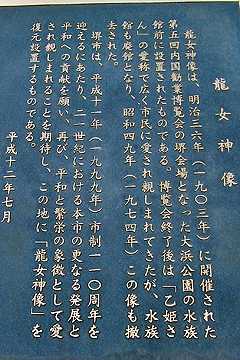 龍女神像
龍女神像は、明治三六年(一九〇三年)に開催された
第五回内国勧業博覧会の堺会場となった大浜公園の水族
館前に設置されたものである。博覧会終了後は「乙姫さ
ん」の愛称で広く市民に愛され親しまれてきたが、水族
館も廃館となり、昭和四九年(一九七四年)この像も撤
去された。
堺市は、平成十一年(一九九九年)市制一一〇周年を
迎えるにあたり、二一世紀における本市の更なる発展と
平和への貢献を願い、再び、平和と繁栄の象徴として愛
され親しまれることを期待し、この地に「龍女神像」を
復元設置するものである。
平成十二年七月